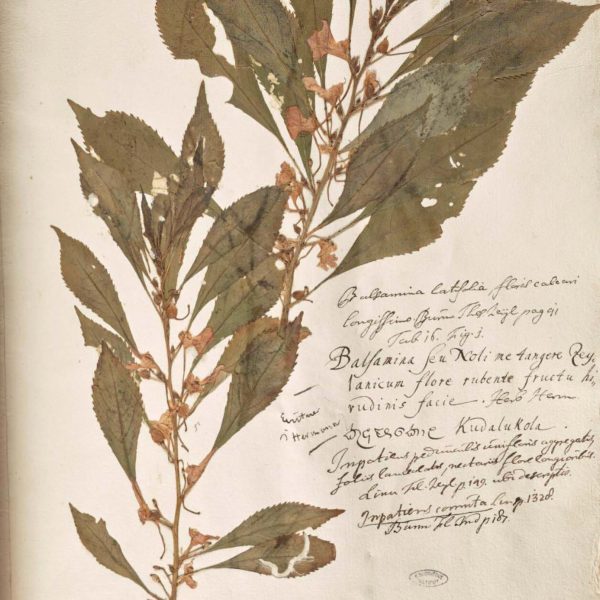 Balsamina latifolia floris calcari
longissimo Burm Thes Zeyl pag 41
Tab 16. Fig. 1.
Balsamina seu Noli me tangere Zey,
lanicum flore rubente fructu hi,
rudinis facie. Herb Herm
Kudalukola.
Impatiens pedunculis unifloris aggregatis,
foliis lanceolatis, nectariis flore longioribus.
Linn. Fl. Zeyl p 149. ubi descriptio.
Impatiens cornuta Linn p 1328.
Burm Fl Ind p 187.